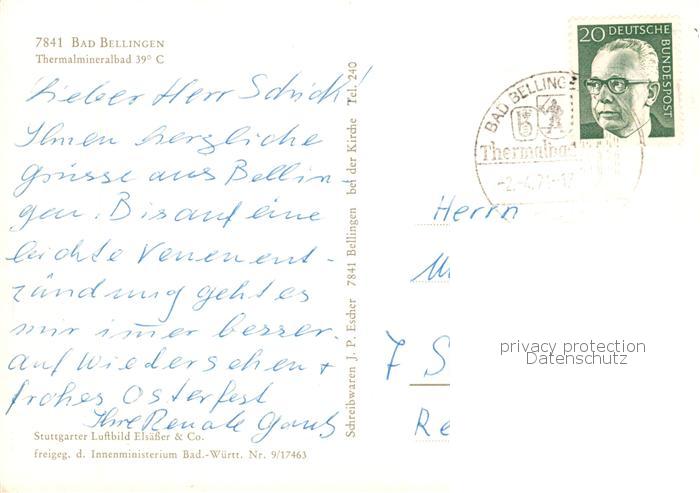 7841 BAD BELLINGEN
Thermalmineralbad 39° C
Lieber Herr Schick!
Ihnen herzliche
Grüsse aus Bellin-
gen. Bis auf eine
leichte Venenent-
zündung geht es
mir im̅er besser.
Auf Wiedersehen +
frohes Osterfest
Ihre Renate
Stuttgarter Luftbild Elsäßer & Co.
freigeg. d. Innenministerium Bad.-Württ. Nr. 9/17463
Schreibwaren J. P. Escher 7841 Bellingen bei der Kirche Tel. 240
20 DEUTSCHE
BUNDESPOST
BAD BELLING
Thermalbad
-2.-4.71-17
Herrn
7 S
Re
privacy protection
Datenschutz